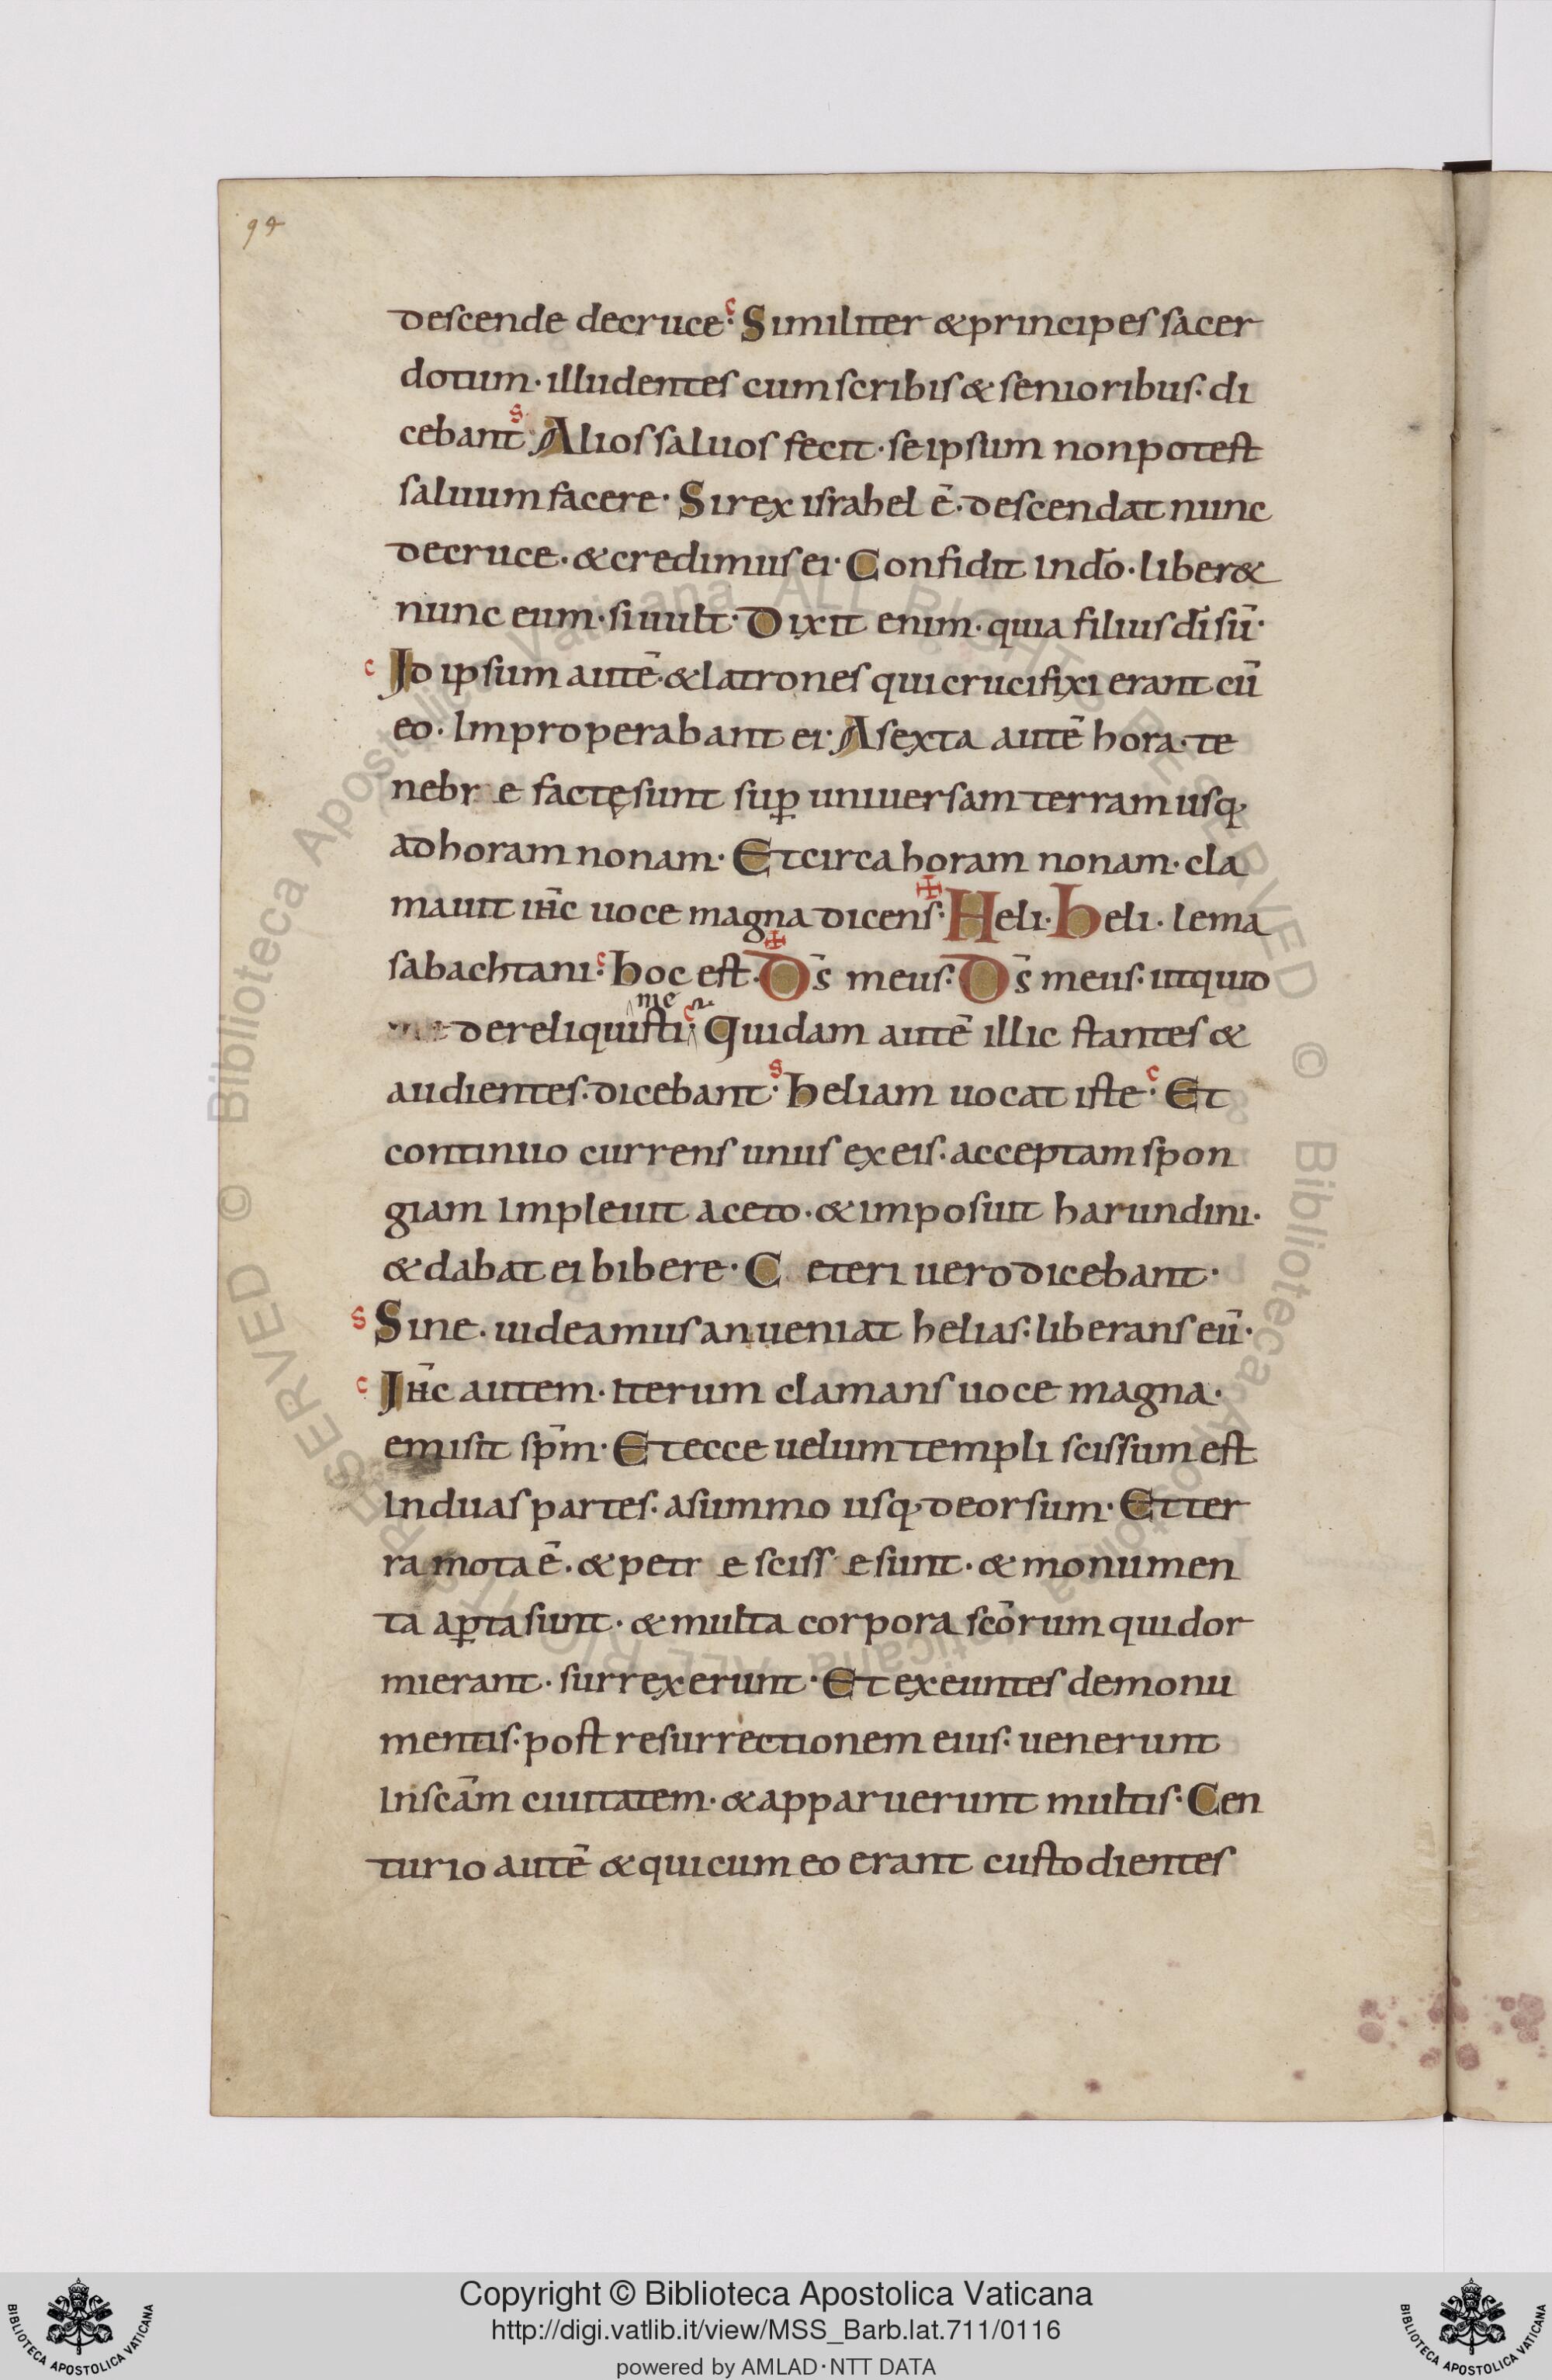 94
descende decruce· c Similiter &principes sacer
dotum· illudentes cum scribis & senioribus· di
cebant· s Alios saluos fecit· seipsum non potest
saluum facere· Si rex israhel ē· descendat nunc
decruce· &credimus ei· Confidit indo̅· liber&
nunc eum· si uult· Dixit enim· quia filius di̅ su̅·
c Id ipsum autē· &latrones qui crucifixi erant cu̅
eo· Improperabant ei· A sexta autē hora· te
nebr e factę sunt sup̲ uniuersam terram usq·
ad horam nonam· Et circa horam nonam· cla
mauit ih̅c uoce magna dicens· ✠ Heli· heli· lema
sabachtani· c hoc est· ✠ Ds̅ meus· Ds̅ meus· utquid
dereliquisti me c Quidam autē illic stantes &
audientes· dicebant· s heliam uocat iste· c Et
continuo currens unus ex eis· acceptam spon
giam Impleuit aceto· &imposuit harundini·
&dabat ei bibere· C eteri uero dicebant·
s Sine· uideamus an ueniat helias· liberans eu̅·
c Ih̅c autem· Iterum clamans uoce magna·
emisit sp̅m· Et ecce uelum templi scissum est
Induas partes· asummo usq· deorsum· Et ter
ra mota ē· &petr e sciss e sunt· & monumen
ta ap̲ta sunt· &multa corpora sco̅rum qui dor
mierant· surrexerunt· Et exeuntes demonu
mentis· post resurrectionem eius· uenerunt
In sca̅m ciuitatem· &apparuerunt multis· Cen
turio autē &qui cum eo erant custodientes
© Biblioteca Apostolica Vaticana ALL RIGHTS RESERVED
© Biblioteca Apostolica Vaticana ALL RIGHTS RESERVED
Copyright © Biblioteca Apostolica Vaticana
http://digi.vatlib.it/view/MSS_Barb.lat.711/0116
powered by AMLAD·NTT DATA
BIBLIOTECA APOSTOLICA VATICANA
BIBLIOTECA APOSTOLICA VATICANA